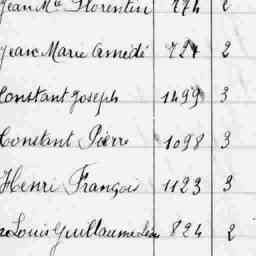 Jean Mie Florentin 274 2
Jean Marie Amédé 724 2
Constant Joseph 1499 3
Constant Pierre 1098 3
Henri François 1123 3
Louis Guillaume Léon 824 2